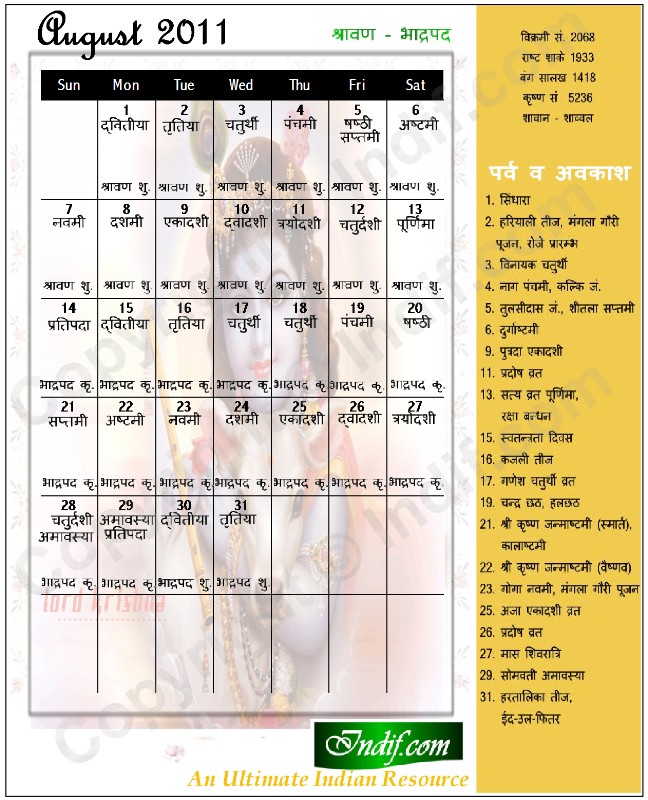 August 2011
श्रावण - भाद्रपद
Sun Mon Tue Wed Thu Fri Sat
1 2 3 4 5 6
द्वितीया तृतिया चतुर्थी पंचमी षष्ठी अष्टमी
सप्तमी
श्रावण शु. श्रावण शु. श्रावण शु. श्रावण शु. श्रावण शु. श्रावण शु.
7 8 9 10 11 12 13
नवमी दशमी एकादशी द्वादशी त्रयोदशी चतुर्दशी पूर्णिमा
श्रावण शु. श्रावण शु. श्रावण शु. श्रावण शु. श्रावण शु. श्रावण शु. श्रावण शु.
14 15 16 17 18 19 20
प्रतिपदा द्वितीया तृतिया चतुर्थी चतुर्थी पंचमी षष्ठी
भाद्रपद कृ. भाद्रपद कृ. भाद्रपद कृ. भाद्रपद कृ. भाद्रपद कृ. भाद्रपद कृ. भाद्रपद कृ.
21 22 23 24 25 26 27
सप्तमी अष्टमी नवमी दशमी एकादशी द्वादशी त्रयोदशी
भाद्रपद कृ. भाद्रपद कृ. भाद्रपद कृ. भाद्रपद कृ. भाद्रपद कृ. भाद्रपद कृ. भाद्रपद कृ.
28 29 30 31
चतुर्दशी अमावस्या द्वितीया तृतिया
अमावस्या प्रतिपदा
भाद्रपद कृ. भाद्रपद कृ. भाद्रपद शु. भाद्रपद शु.
lord krishna
विक्रमी सं. 2068
राष्ट शाके 1933
बंग सालख 1418
कृष्ण सं 5236
शावान - शाव्वल
पर्व व अवकाश
1. सिंधारा
2. हरियाली तीज, मंगला गौरी
पूजन, रोजे प्रारम्भ
3. विनायक चतुर्थी
4. नाग पंचमी, कल्कि जं.
5. तुलसीदास जं., शीतला सप्तमी
6. दुर्गाष्टमी
9. पुत्रदा एकादशी
11. प्रदोष व्रत
13. सत्य व्रत पूर्णिमा,
रक्षा बन्धन
15. स्वतन्त्रता दिवस
16. कजली तीज
17. गणेश चतुर्थी व्रत
19. चन्द्र छठ, हलछठ
21. श्री कृष्ण जन्माष्टमी (स्मार्त),
कालाष्टमी
22. श्री कृष्ण जन्माष्टमी (वैष्णव)
23. गोगा नवमी, मंगला गौरी पूजन
25. अजा एकादशी व्रत
26. प्रदोष व्रत
27. मास शिवरात्रि
29. सोमवती अमावस्या
31. हरतालिका तीज,
ईद-उल-फितर
Indif.com
An Ultimate Indian Resource
Copyright © Indif.com
Copyright © Indif.com
Copyright © Indif.com